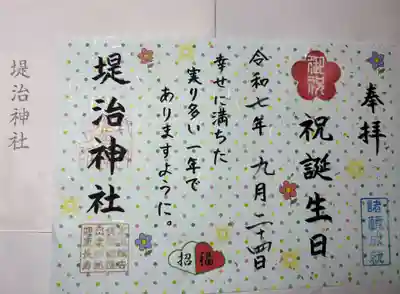 奉拝
御祝
祝誕生日
諸願成就
令和七年 九月二十四日
幸せに満ちた
実り多い一年で
ありますように。
招福
堤治神社
堤治神社